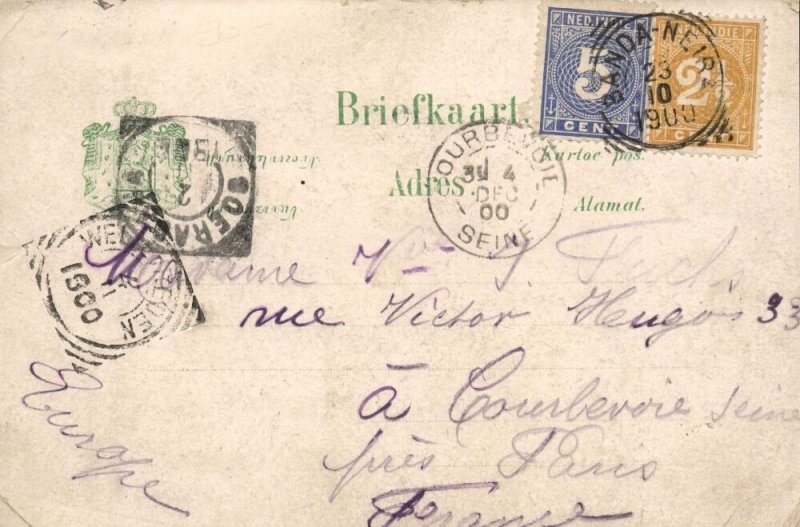 NED.INDIE
5
CENT
2½
BANDA-NEIRA
23
10
1900
Briefkaart.
Kartoe pos.
Adres
Alamat.
COURBEVOIE
4
DEC
00
SEINE
SOERABAJA
WELTEVREDEN
1900
Madame Vve J Fuchs
rue Victor Hugo 33
à Courbevoie Seine
près Paris
France
Europe